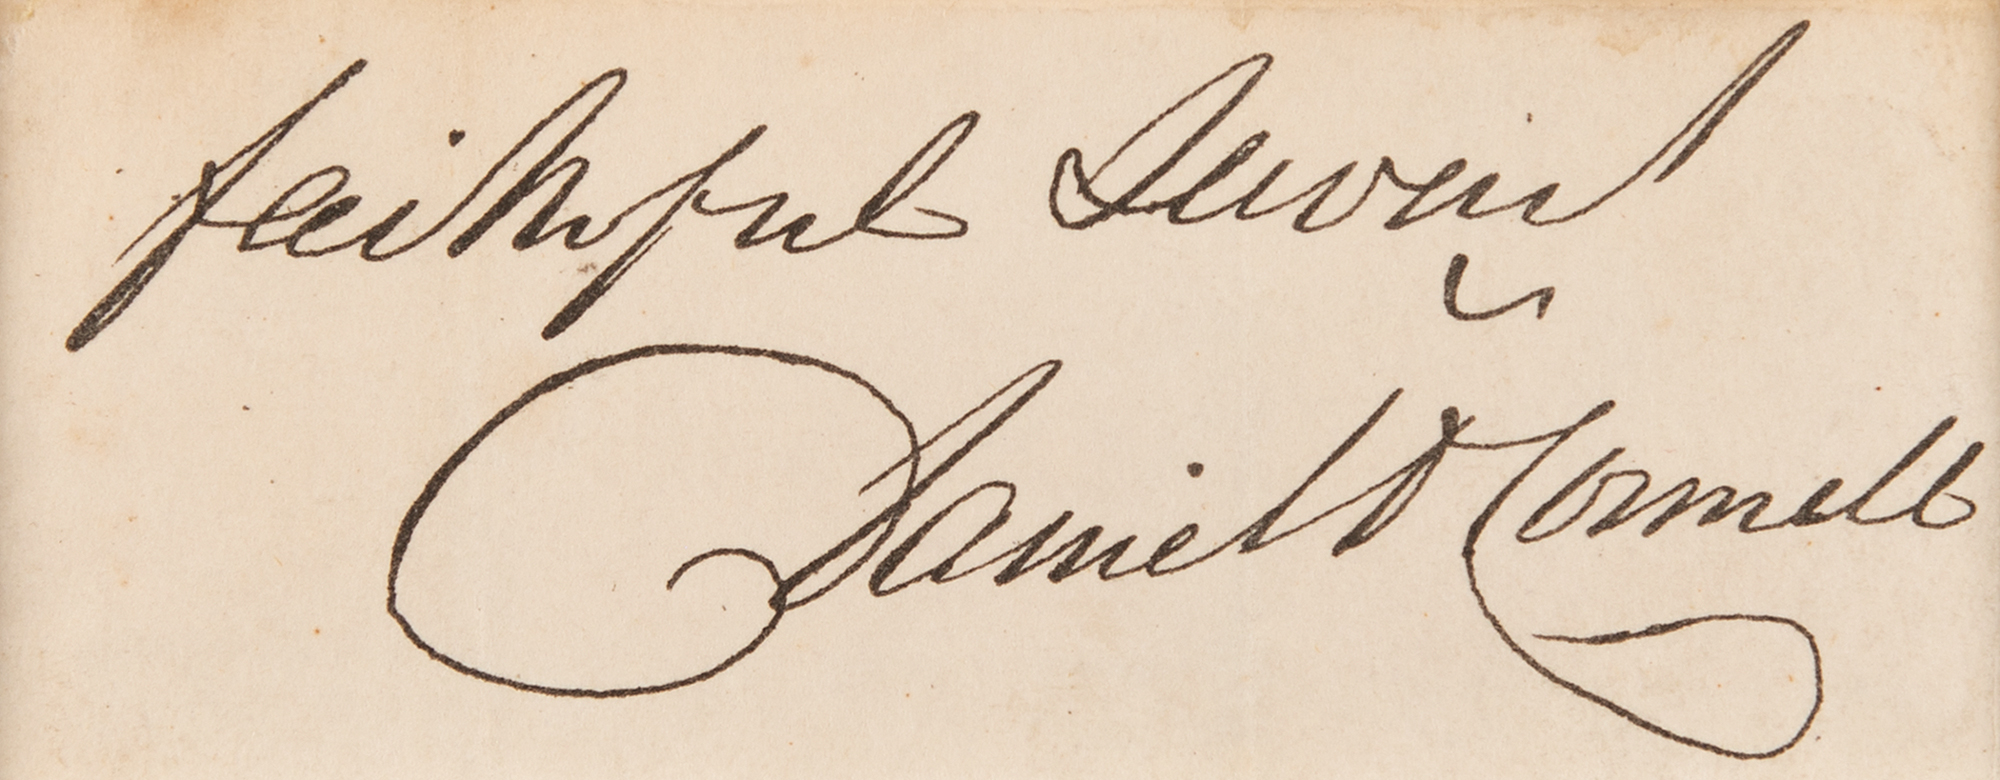 faithful Servant
Daniel O Connell